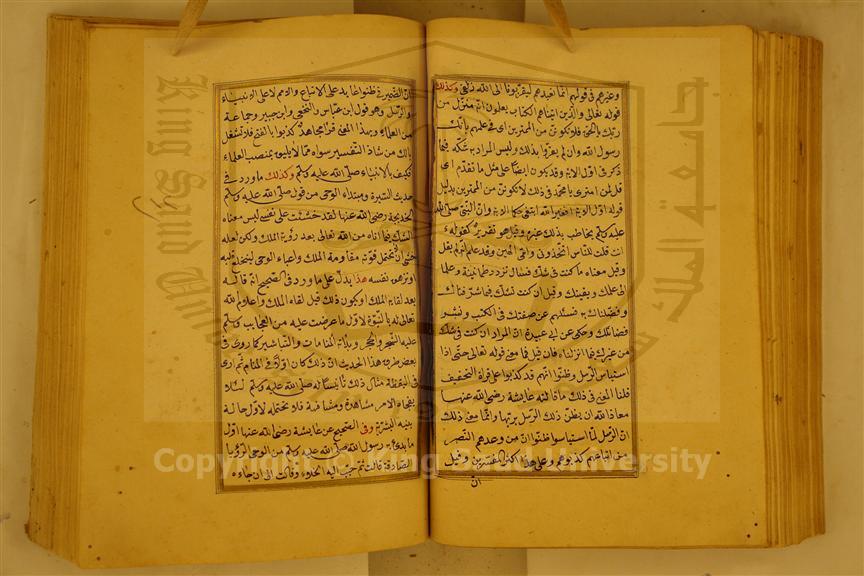 وغيرهم في قولهم انما نعبدهم ليقربونا الى الله زلفى وكذلك
قوله تعالى والذين اتيناهم الكتاب يعلمون انه منزل من
ربك بالحق فلا تكونن من الممترين اى فى علمهم بانك
رسول الله وان لم يقروا بذلك وليس المراد به شكه فيما
ذكر فى اول الاية وقد يكون ايضا على مثل ما تقدم اى
قل لمن امترى يا محمد فى ذلك لا تكونن من الممترين بدليل
قوله اول الاية افغير الله ابتغى حكما الاية وان النبى صلى الله
عليه وسلم يخاطب بذلك غيره وقيل هو تقرير كقوله ء
انت قلت للناس اتخذونى وامى الهين وقد علم انه لم يقل
وقيل معناه ما كنت فى شك فسئل تزدد طمانينة وعلما
الى علمك ويقينك وقيل ان كنت تشك فيما شرفناك
وفضلناك به فسئلهم عن صفتك فى الكتب ونشر
فضائلك وحكى عن ابى عبيدة ان المراد ان كنت فى شك
من غيرك فيما انزلناه فان قيل فما معنى قوله تعالى حتى اذا
استيأس الرسل وظنوا انهم قد كذبوا على قراءة التخفيف
قلنا المعنى فى ذلك ما قالته عايشة رضى الله عنها
معاذ الله ان يظن ذلك الرسل بربها وانما معنى ذلك
ان الرسل لما استيأسوا ظنوا ان من وعدهم النصر
من اتباعهم كذبوهم وعلى هذا اكثر المفسرين وقيل
ان
ان الضمير فى ظنوا عايد على الاتباع والامم لا على الانبياء
والرسل وهو قول ابن عباس والنخعى وابن جبير وجماعة
من العلماء وبهذا المعنى قرا مجاهد كذبوا بالفتح فلا تشغل
بالك من شاذ التفسير بسواه مما لا يليق بمنصب العلماء
فكيف بالانبياء صلى الله عليه وسلم وكذلك ما ورد فى
حديث السيرة ومبتداء الوحى من قوله صلى الله عليه وسلم
لخديجة رضى الله عنها لقد خشيت على نفسى ليس معناه
الشك فيما اتاه من الله تعالى بعد رؤية الملك ولكن لعله
خشى ان لا تحتمل قوته مقاومة الملك واعباء الوحى لينخلع قلبه
او تزهق نفسه هذا يدل على ما ورد فى الصحيح انه قاله
بعد لقاءه الملك او يكون ذلك قبل لقاء الملك واعلام الله
تعالى له بالنبوة لاول ما عرضت عليه من العجايب وسلم
عليه الشجر والحجر وبدأته المنامات والتباشير كما روى فى
بعض طرق هذا الحديث ان ذلك كان اولا فى المنام ثم ارى
فى اليقظة مثال ذلك تأنيسا له صلى الله عليه وسلم لئلا
يفجاءه الامر مشاهدة ومشافهة فلا يحتمله لاول حالة
بنية البشرية وفى الصحيح عن عايشة رضى الله عنها اول
ما بدئ به رسول الله صلى الله عليه وسلم من الوحى الرؤيا
الصادقة قالت ثم حبب اليه الخلاء وقالت الى ان جاءه
King Saud University
جامعة الملك سعود
Copyright © King Saud University